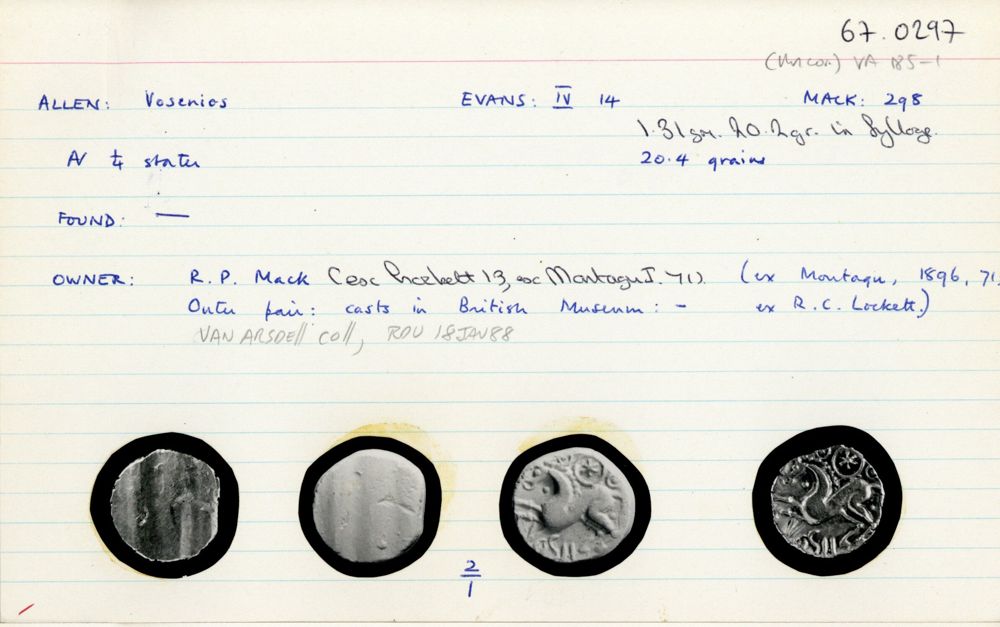 67.0297
(Uncon.) VA 185-1
ALLEN: Vosenios EVANS: IV 14 MACK: 298
1.31gm. 20.2gr. in Sylloge.
N ¼ stater 20.4 grains
FOUND: —
OWNER: R. P. Mack (ex Lockett 13, ex Montagu I. 71) (ex Montagu, 1896, 71,
Outer pair: casts in British Museum: - ex R. C. Lockett.)
VAN ARSDELL coll, RDV 18JAN88
2/1